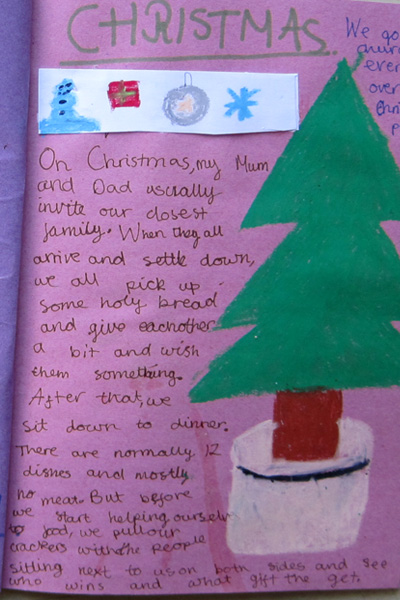 CHRISTMAS
On Christmas, my Mum
and Dad usually
invite our closest
family. When they all
arrive and settle down,
we all pick up
some holy bread
and give eachother
a bit and wish
them something.
After that, we
sit down to dinner.
There are normally 12
dishes and mostly
no meat. But before
we start helping ourselv
to food, we pull our
crackers with the people
sitting next to us on both sides and see
who wins and what gift the get.
We go
ever
over